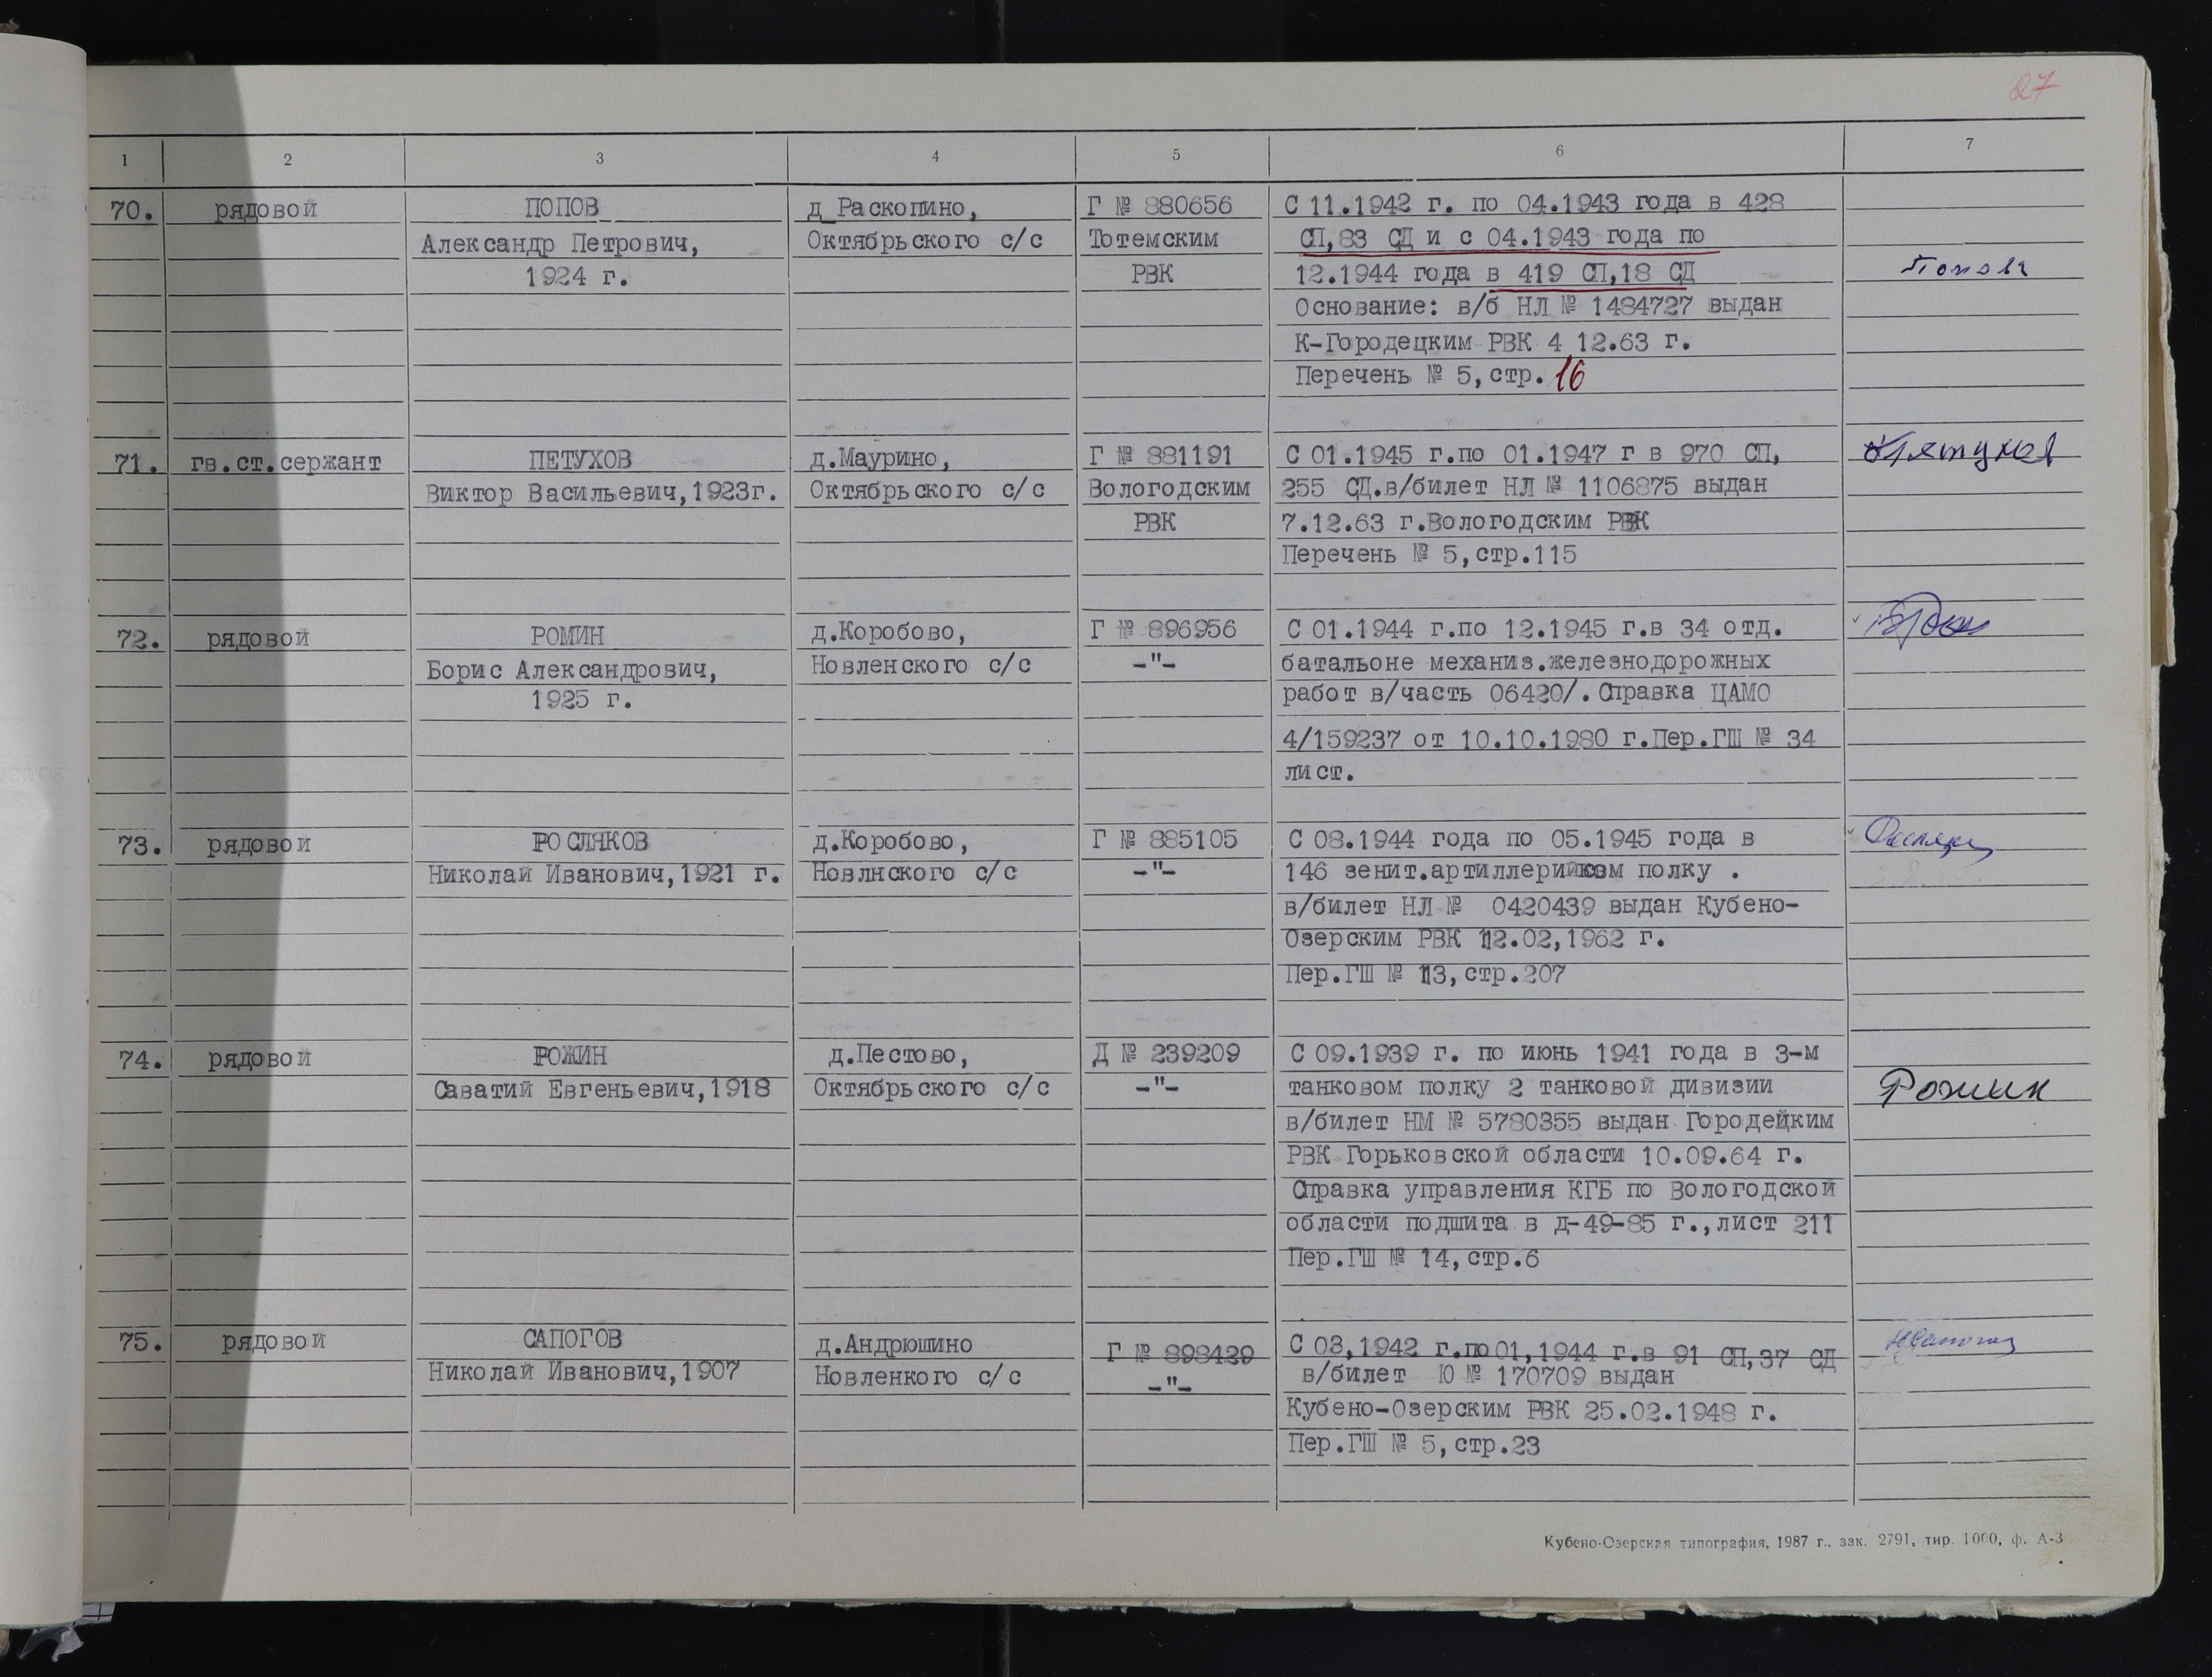 27
1 2 3 4 5 6 7
70. рядовой ПОПОВ д Раскопино, Г № 880656 С 11.1942 г. по 04.1943 года в 428
Александр Петрович, Октябрьского с/с Тотемским СП,83 СД и с 04.1943 года по
1924 г. РВК 12.1944 года в 419 СП,18 СД
Основание: в/б НЛ № 1484727 выдан
К-Городецким РВК 4 12.63 г.
Перечень № 5,стр.16
71. гв.ст.сержант ПЕТУХОВ д.Маурино, Г № 881191 С 01.1945 г.по 01.1947 г в 970 СП,
Виктор Васильевич,1923г. Октябрьского с/с Вологодским 255 СД.в/билет НЛ № 1106875 выдан
РВК 7.12.63 г.Вологодским РВК
Перечень № 5,стр.115
72. рядовой РОМИН д.Коробово, Г № 896956 С 01.1944 г.по 12.1945 г.в 34 отд.
Борис Александрович, Новленского с/с -"- батальоне механиз.железнодорожных
1925 г. работ в/часть 06420/.Справка ЦАМО
4/159237 от 10.10.1980 г.Пер.ГШ № 34
лист.
73. рядовой РОСЛЯКОВ д.Коробово, Г № 885105 С 08.1944 года по 05.1945 года в
Николай Иванович,1921 г. Новлнского с/с -"- 146 зенит.артиллерийском полку .
в/билет НЛ № 0420439 выдан Кубено-
Озерским РВК 12.02,1962 г.
Пер.ГШ № 13,стр.207
74. рядовой РОЖИН д.Пестово, Д № 239209 С 09.1939 г. по июнь 1941 года в 3-м
Саватий Евгеньевич,1918 Октябрьского с/с -"- танковом полку 2 танковой дивизии Рожин
в/билет НМ № 5780355 выдан Городецким
РВК Горьковской области 10.09.64 г.
Справка управления КГБ по Вологодской
области подшита в д-49-85 г.,лист 211
Пер.ГШ № 14,стр.6
75. рядовой САПОГОВ д.Андрюшино Г № 898429 С 03,1942 г.по 01,1944 г.в 91 СП,37 СД
Николай Иванович,1907 Новленкого с/с -"- в/билет Ю № 170709 выдан
Кубено-Озерским РВК 25.02.1948 г.
Пер.ГШ № 5,стр.23
Кубено-Озерская типография, 1987 г., зак. 2791, тир. 1000, ф. А-3